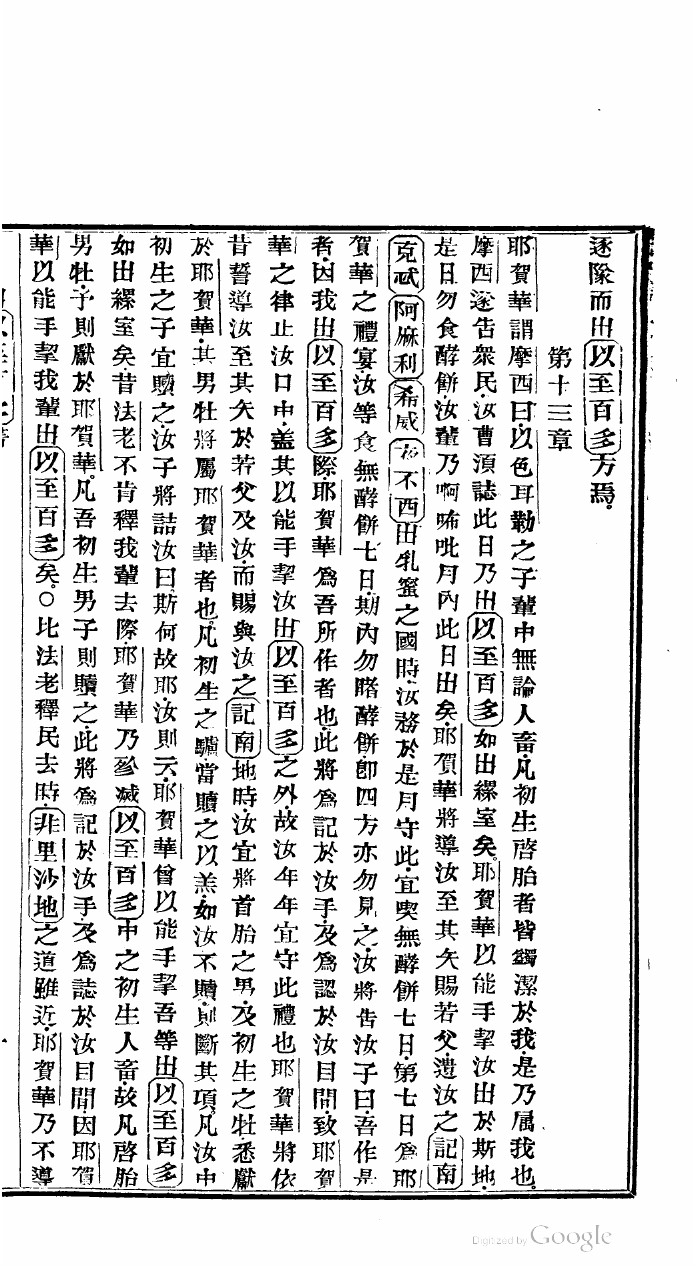 逐隊而出以至百多方焉
第十三章
耶賀華謂摩西曰以色耳勒之子輩中無論人畜凡初生啓胎者皆蠲潔於我是乃屬我也
摩西遂告衆民汝曹須誌此日乃出以至百多如出縲室矣耶賀華以能手挈汝出於斯地
是日勿食酵餅汝輩乃啊唏吡月內此日出矣耶賀華將導汝至其矢賜若父遺汝之記南
克忒阿麻利希威不西出乳蜜之國時汝務於是月守此宜喫無酵餅七日第七日爲耶
賀華之禮宴汝等食無酵餅七日期內勿睹酵餅卽四方亦勿見之汝將告汝子曰吾作是
者因我出以至百多際耶賀華爲吾所作者也此將爲記於汝手及爲認於汝目間致耶賀
華之律止汝口中盖其以能手挈汝出以至百多之外故汝年年宜守此禮也耶賀華將依
昔誓導汝至其矢於若父及汝而賜與汝之記南地時汝宜將首胎之男及初生之牡悉獻
於耶賀華其男牡將屬耶賀華者也凡初生之驢當贖之以羔如汝不贖則斷其項凡汝中
初生之子宜贖之汝子將詰汝曰斯何故耶汝則云耶賀華曾以能手挈吾等出以至百多
如出縲室矣昔法老不肯釋我輩去際耶賀華乃殄滅以至百多中之初生人畜故凡啓胎
男牡予則獻於耶賀華凡吾初生男子則贖之此將爲記於汝手及爲誌於汝目間因耶賀
華以能手挈我輩出以至百多矣○比法老釋民去時非里沙地之道雖近耶賀華乃不導
Digitized by Google